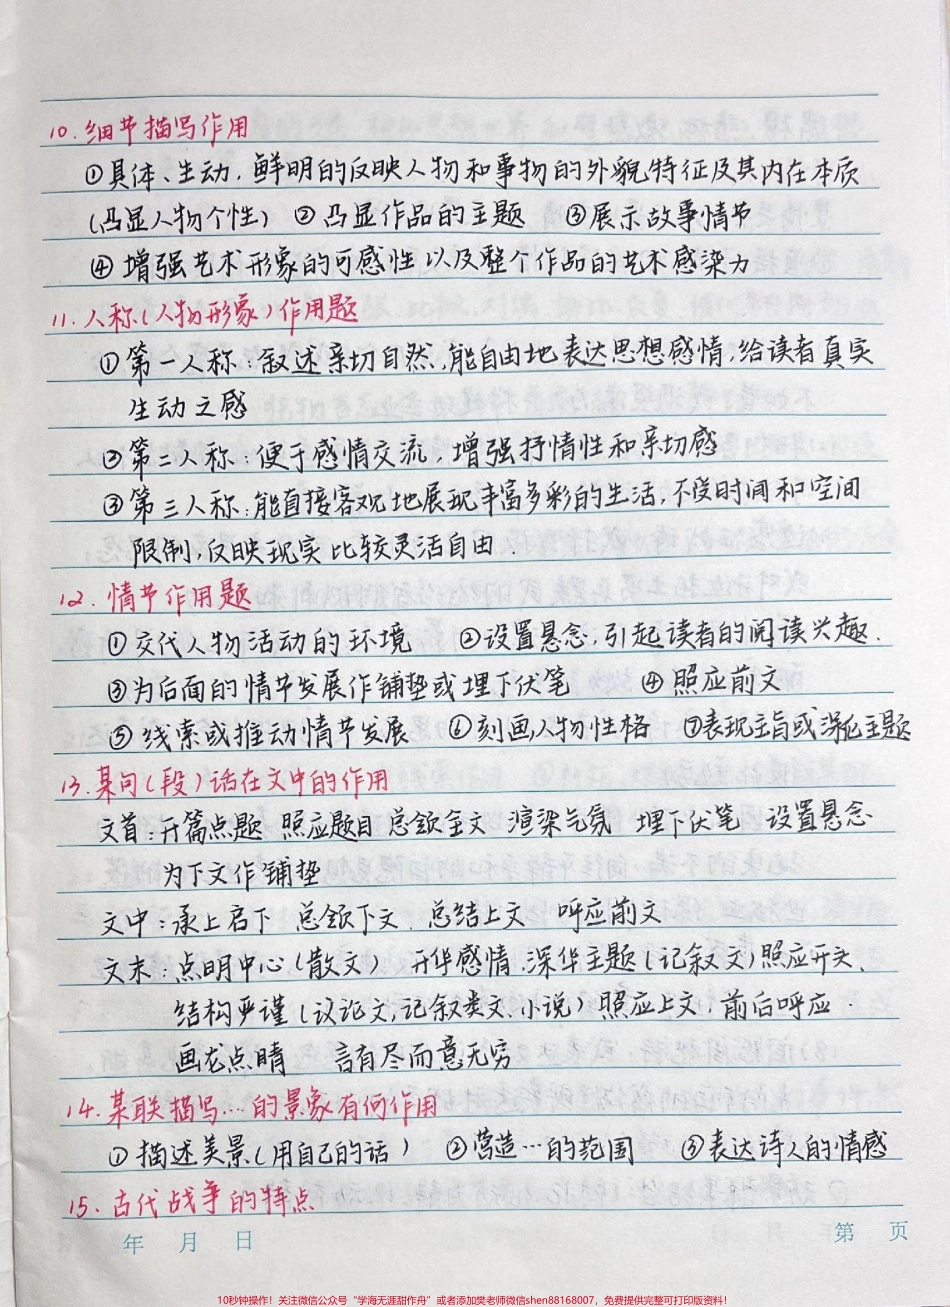 10.细节描写作用
①具体、生动,鲜明的反映人物和事物的外貌特征及其内在本质
(凸显人物个性) ②凸显作品的主题 ③展示故事情节
④增强艺术形象的可感性以及整个作品的艺术感染力
11.人称(人物形象)作用题
①第一人称:叙述亲切自然,能自由地表达思想感情,给读者真实
生动之感
②第二人称:便于感情交流,增强抒情性和亲切感
③第三人称:能直接客观地展现丰富多彩的生活,不受时间和空间
限制,反映现实比较灵活自由.
12.情节作用题
①交代人物活动的环境 ②设置悬念,引起读者的阅读兴趣.
③为后面的情节发展作铺垫或埋下伏笔 ④照应前文
⑤线索或推动情节发展 ⑥刻画人物性格 ⑦表现主旨或深化主题
13.某句(段)话在文中的作用
文首:开篇点题 照应题目 总领全文 渲染气氛 埋下伏笔 设置悬念
为下文作铺垫
文中:承上启下 总领下文 总结上文 呼应前文
文末:点明中心(散文) 升华感情,深华主题(记叙文)照应开头.
结构严谨(议论文,记叙类文,小说)照应上文,前后呼应.
画龙点睛 言有尽而意无穷
14.某联描写…的景象有何作用
①描述美景(用自己的话) ②营造…的范围 ③表达诗人的情感
15.古代战争的特点
年 月 日 第 页
10秒钟操作!关注微信公众号“学海无涯甜作舟”或者添加樊老师微信shen88168007,免费提供完整可打印版资料!